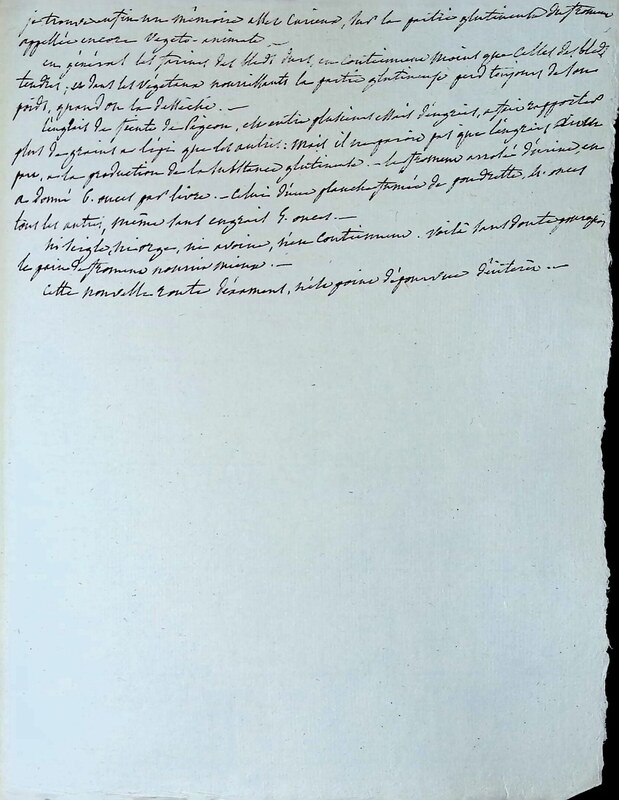 je trouve enfin un mémoire assez curieux, sur la partie glutineuse du froment
appellée encore végéto-animale. —
en général les farines des bleds durs, en contiennent moins que celles des bleds
tendres; et dans les végétaux nourrissants la partie glutineuse perd toujours de son
poids, quand on la dessèche. —
l'engrais de fiente de pigeon, est entre plusieurs essais d'engrais, a fait rapporter
plus de grains a l'épi que les autres: mais il ne paroit pas que l'engrais
pure, a la production de la substance glutineuse. — le froment arrosé d'urine, en
a donné 6. onces par livre. — celui d'une planche fumée de poudrette 4. onces
tous les autres, même sans engrais 5. onces. —
ni seigle, ni orge, ni avoine, n'en contiennent. voilà sans doute pourquoi
le pain de froment nourrit mieux. —
cette nouvelle route d'examens, n'est point dépourvue d'intérêt. —